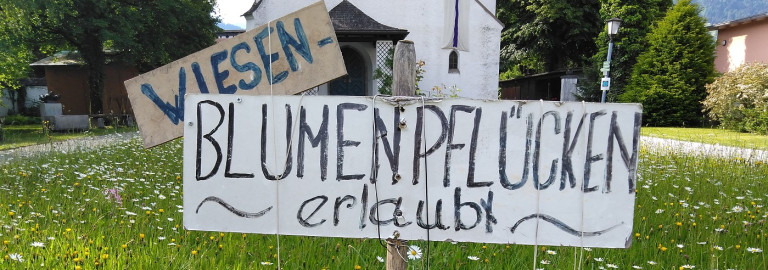 WIESEN-
BLUMENPFLÜCKEN
~ erlaubt ~